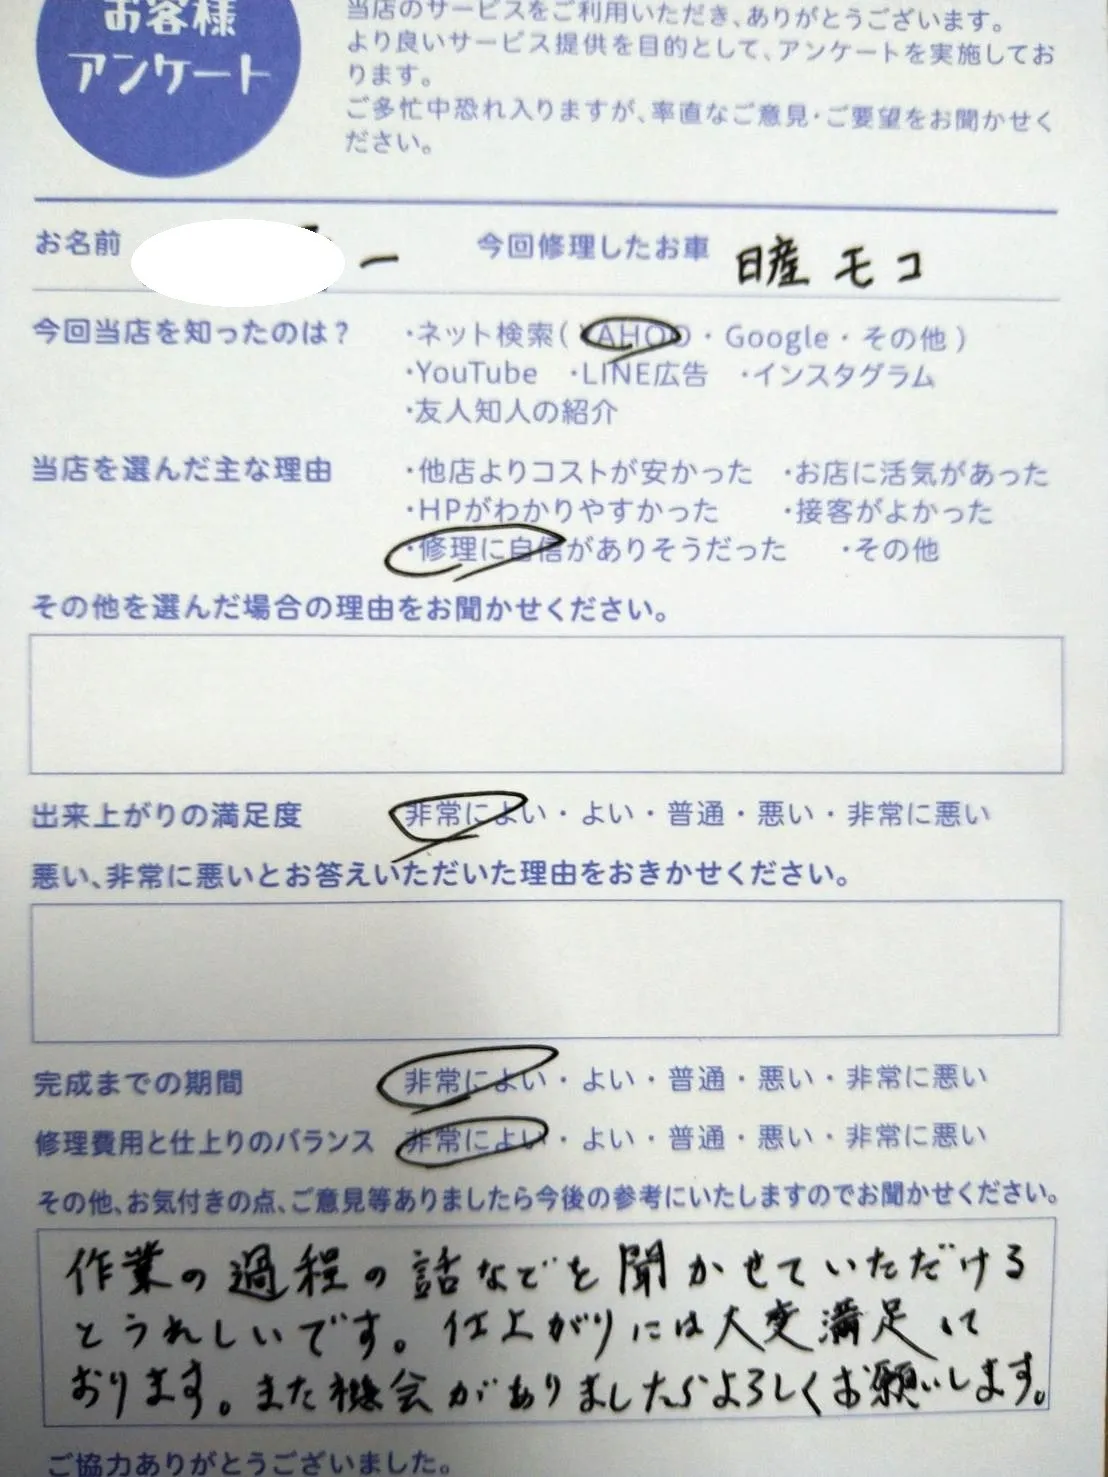 お客様
アンケート
当店のサービスをご利用いただき、ありがとうございます。
より良いサービス提供を目的として、アンケートを実施してお
ります。
ご多忙中恐れ入りますが、率直なご意見・ご要望をお聞かせく
ださい。
お名前 一 今回修理したお車 日産 モコ
今回当店を知ったのは？ ・ネット検索( YAHOO・Google・その他 )
・YouTube ・LINE広告 ・インスタグラム
・友人知人の紹介
当店を選んだ主な理由 ・他店よりコストが安かった ・お店に活気があった
・HPがわかりやすかった ・接客がよかった
・修理に自信がありそうだった ・その他
その他を選んだ場合の理由をお聞かせください。
出来上がりの満足度 非常によい・よい・普通・悪い・非常に悪い
悪い、非常に悪いとお答えいただいた理由をおきかせください。
完成までの期間 非常によい・よい・普通・悪い・非常に悪い
修理費用と仕上りのバランス 非常によい・よい・普通・悪い・非常に悪い
その他、お気付きの点、ご意見等ありましたら今後の参考にいたしますのでお聞かせください。
作業の過程の話などを聞かせていただける
とうれしいです。仕上がりには大変満足して
おります。また機会がありましたらよろしくお願いします。
ご協力ありがとうございました。